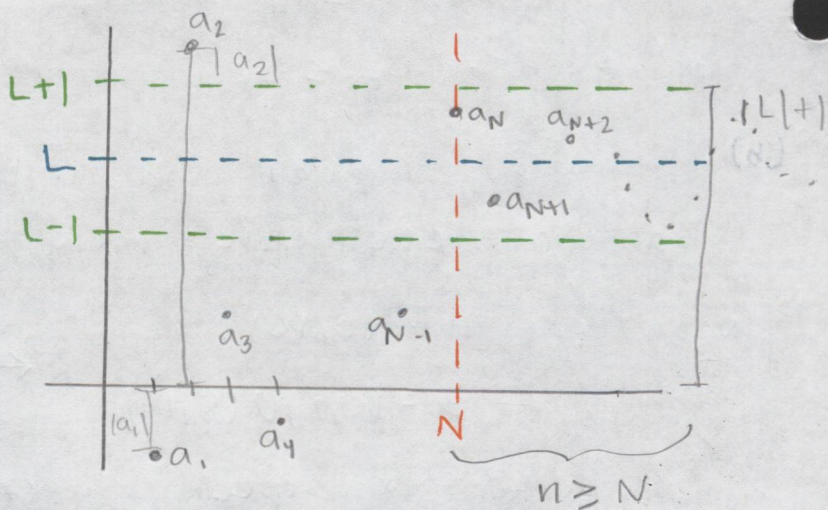 a2
|a2|
L+1
aN
aN+2
|L|+1
L
aN+1
L-1
a3
aN-1
|a1|
a1
a4
N
n ≥ N